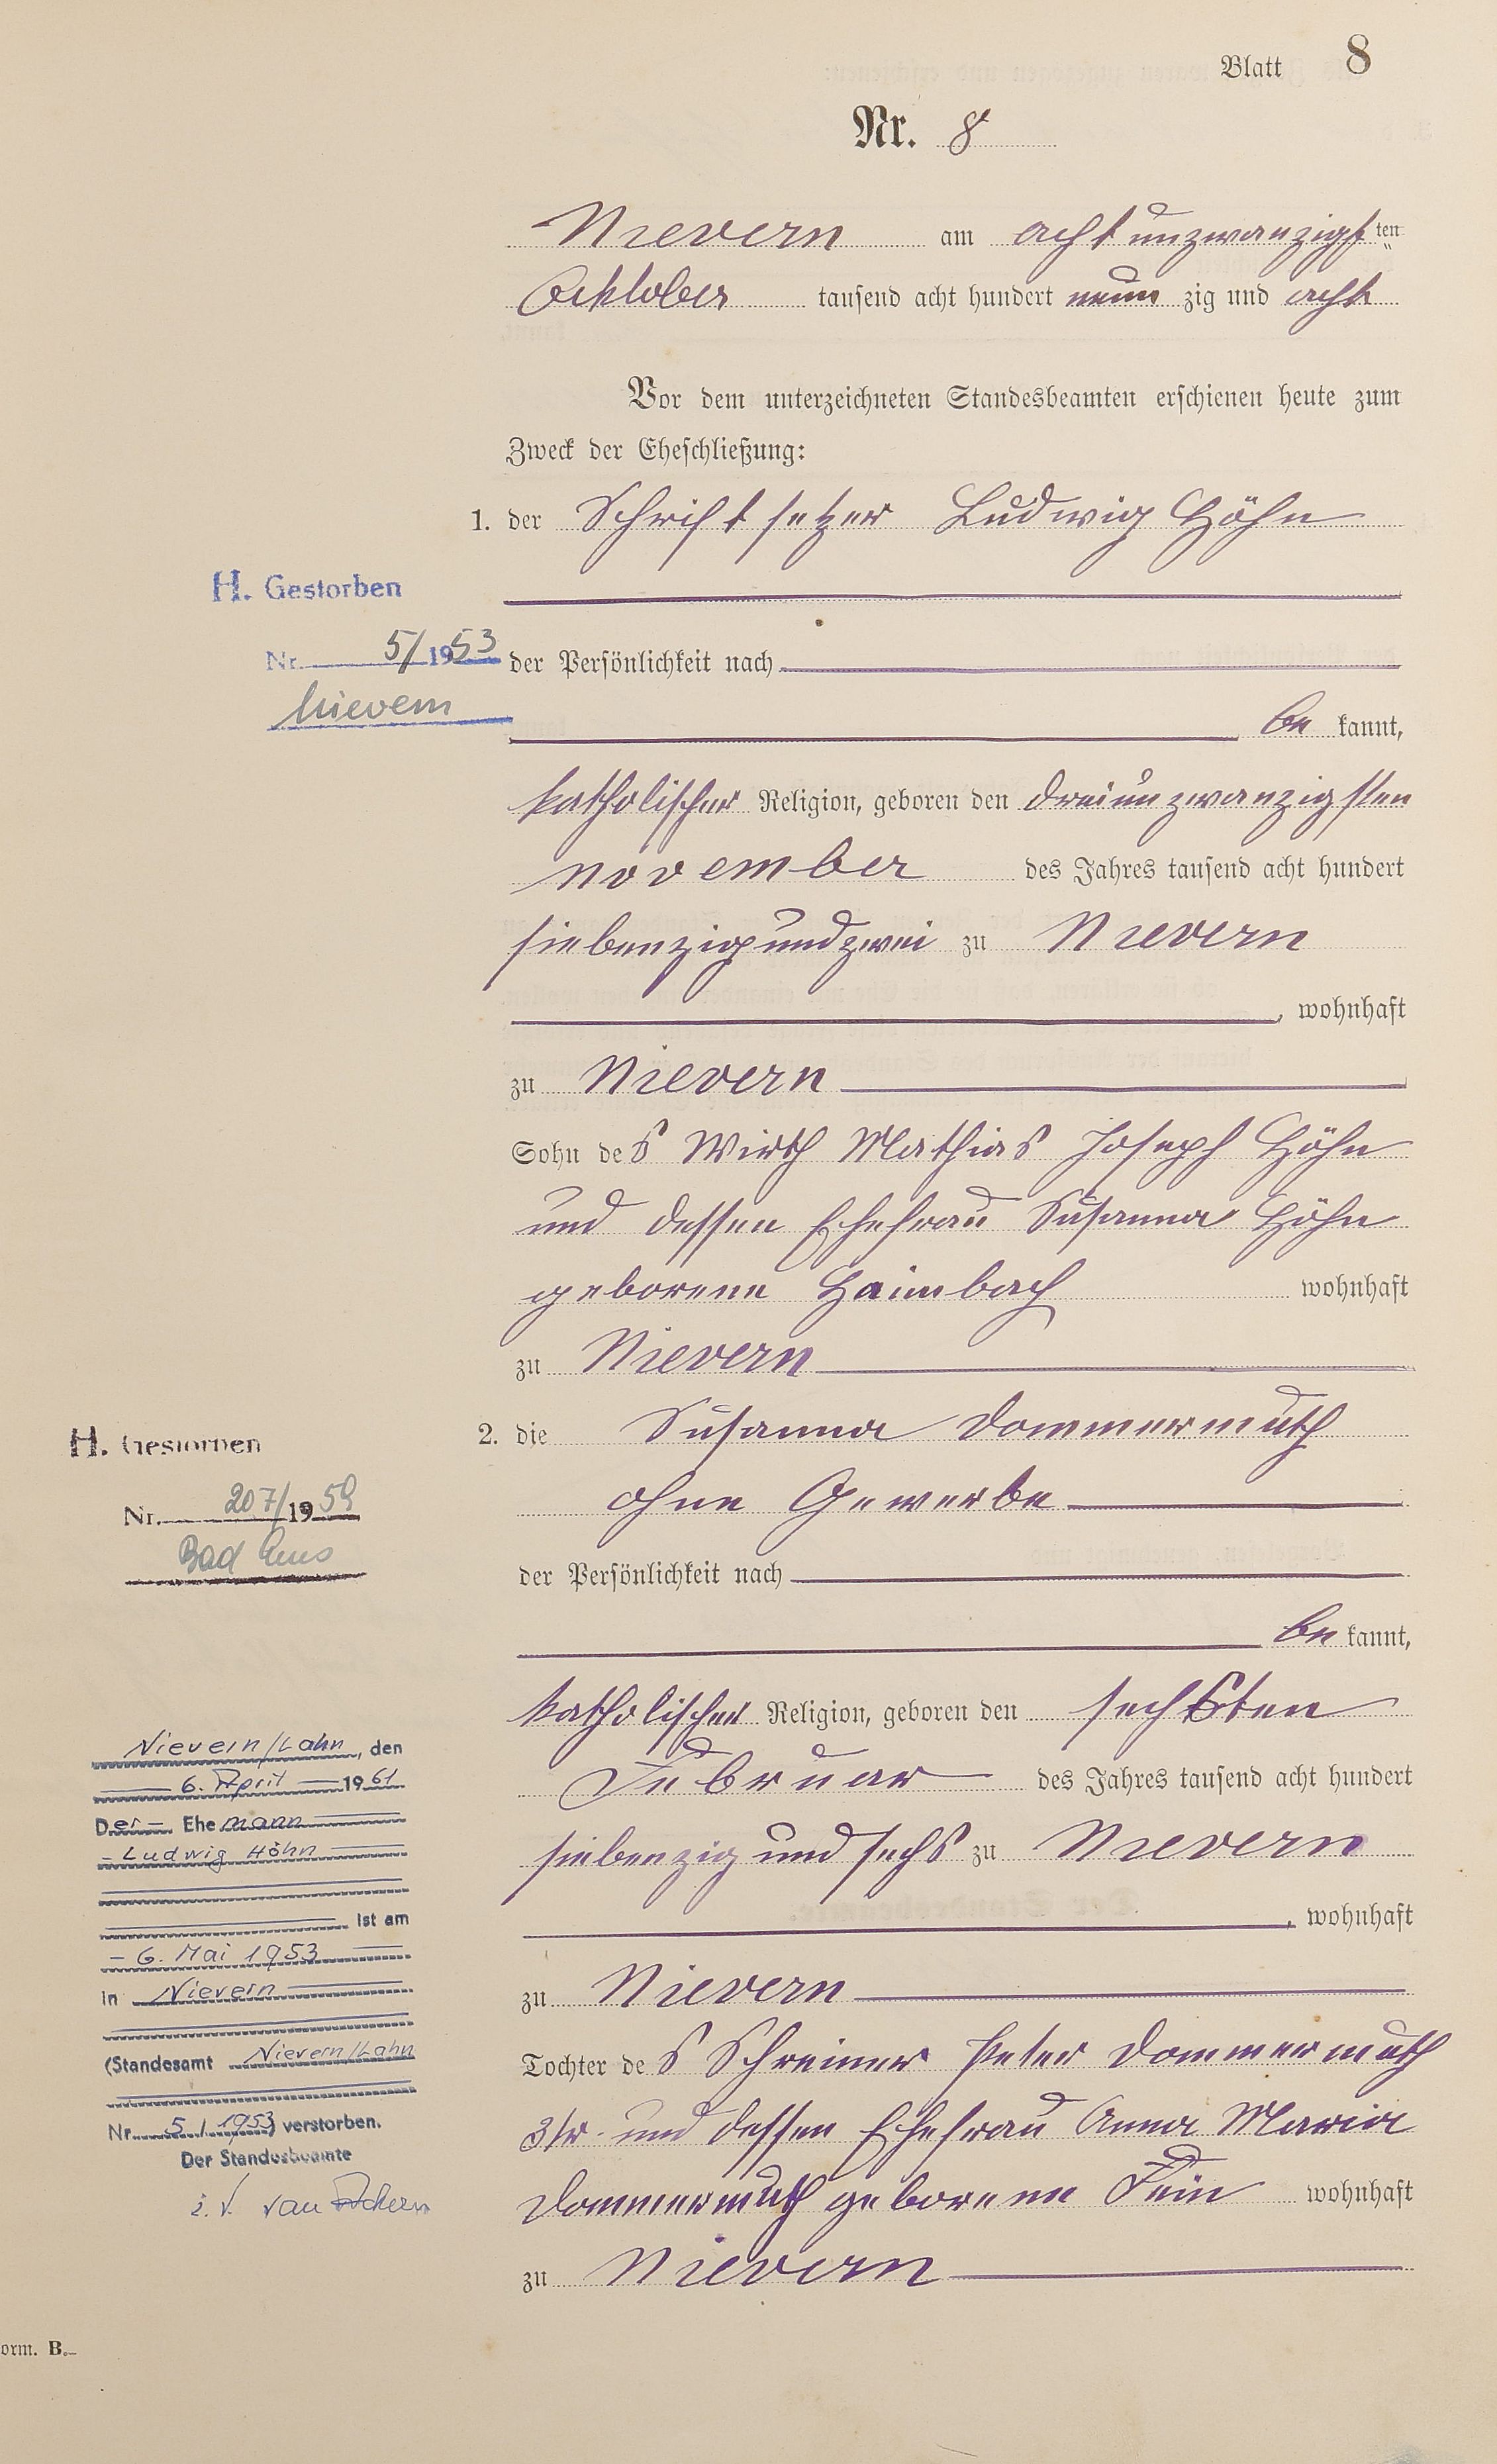 Blatt 8
Nr. 8
Nievern am achtunzwanzigsten
Ocktober tausend acht hundert neun zig und acht
Vor dem unterzeichneten Standesbeamten erschienen heute zum
Zweck der Eheschließung:
1. der Schriftsetzer Ludwig Höhn
der Persönlichkeit nach
be kannt,
katholischer Religion, geboren den dreiunzwanzigsten
November des Jahres tausend acht hundert
siebenzigundzwei zu Nievern
, wohnhaft
zu Nievern
Sohn des Wirth Mathias Joseph Höhn
und dessen Ehefrau Susanna Höhn
geborene Haimbach wohnhaft
zu Nievern
2. die Susanna Dommermuth
ohne Gewerbe
der Persönlichkeit nach
be kannt,
katholischer Religion, geboren den sechsten
Februar des Jahres tausend acht hundert
siebenzig und sechs zu Nievern
, wohnhaft
zu Nievern
Tochter des Schreiner Peter Dommermuth
3tr. und dessen Ehefrau Anna Maria
Dommermuth geborene Fein wohnhaft
zu Nievern
H. Gestorben
Nr. 5/1953
Nievern
H. Gestorben
Nr. 207/1959
Bad Ems
Nievern/Lahn, den
6. April 1961
Der Ehemann
Ludwig Höhn
ist am
6. Mai 1953
in Nievern
(Standesamt Nievern/Lahn
Nr. 5/1953) verstorben.
Der Standesbeamte
i. V.
orm. B.